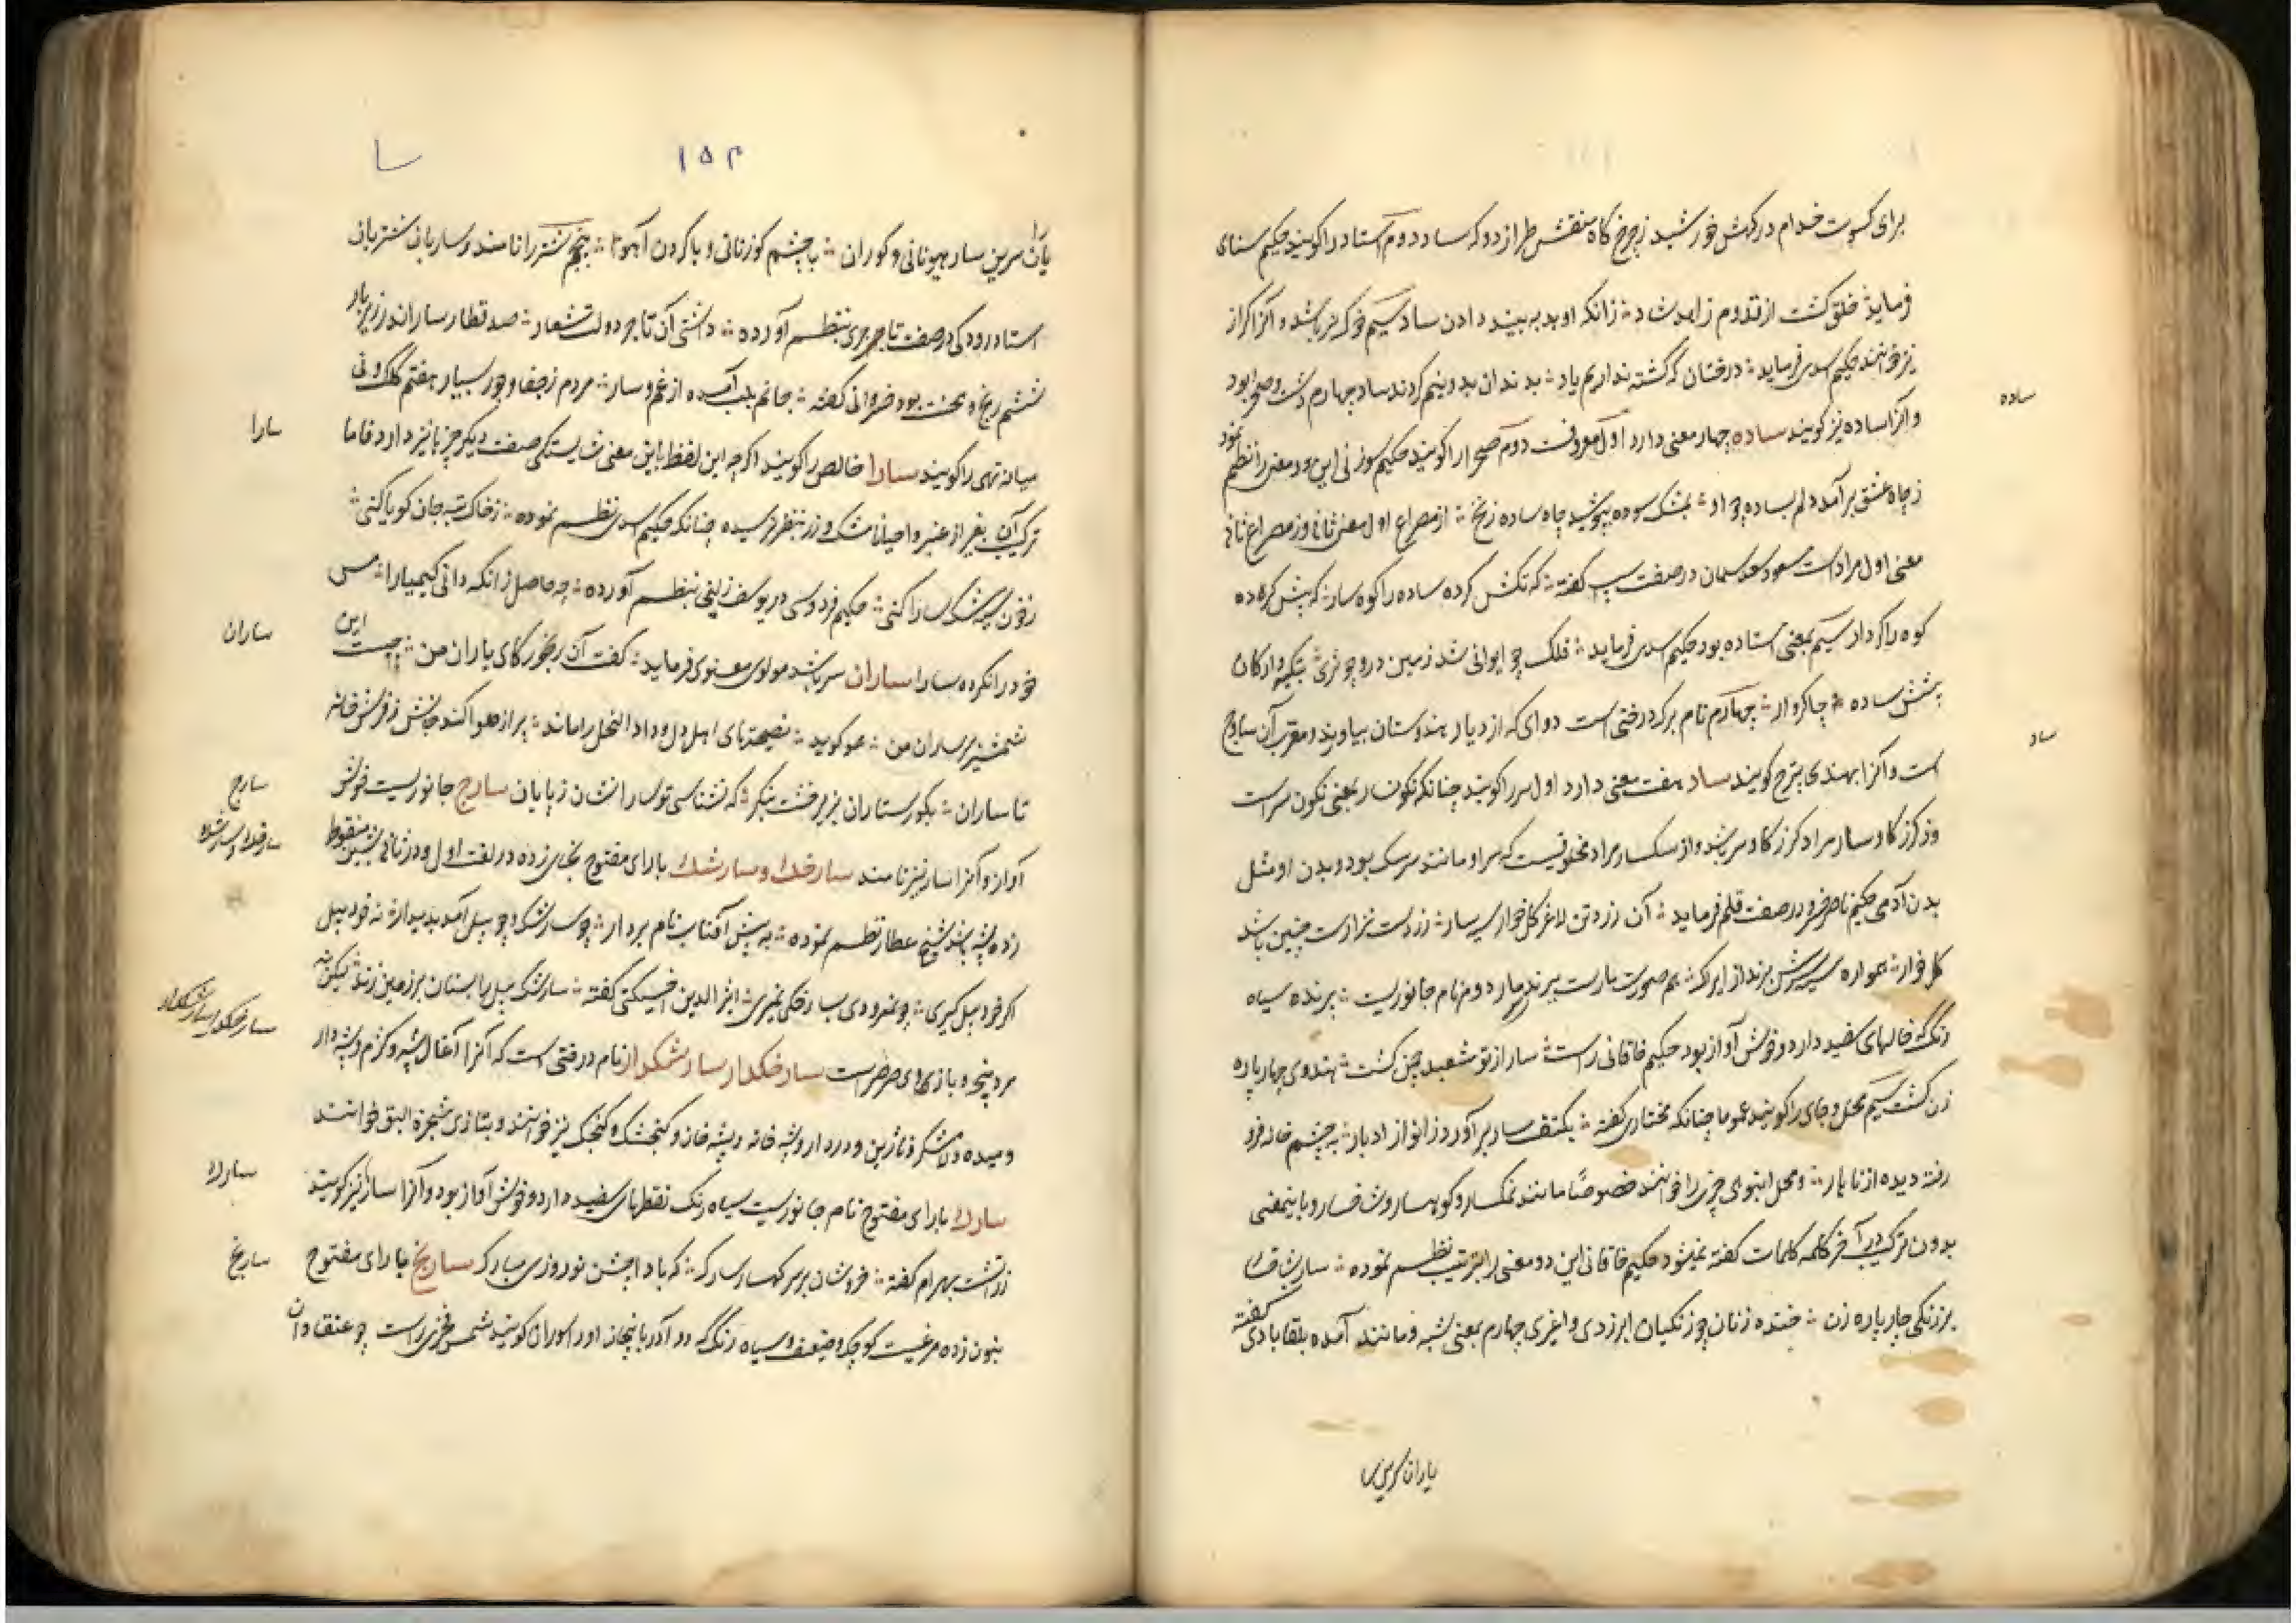 برای کسوت خدام درکهش خورشید زچرخ کاه منقش طراز دو که ساد دوم استاد را کویند حکیم سنای
فرماید خلق کشت از قدوم زاهد شاد زانکه او بد به بیند دادن ساد سیم خوک نر باشد و آنرا کراز
نیز خوانند حکیم اسدی فرماید درختان که کشته نداریم یاد بدندان بدو نیم کردند ساد چهارم دشت و صحرا بود
و آنرا ساده نیز کویند ساده چهار معنی دارد اول معروفست دوم صحرا را کویند حکیم سوزنی این دو معنی را نظم نمود
زچاه عشق برآمد دلم بساده چو او بمشک سوده بپوشید چاه ساده زنخ از مصراع اول معنی ثانی وز مصراع ثانی
معنی اول مراد است مسعود سعد سلمان در صفت اسپ کفته که تکش کرده ساده را کوه سار که پیش کرده
کوه را کردار سیم بمعنی استاده بود حکیم اسدی فرماید فلک چو ایوانی شد زمین درو چو تری بتکیه دارکان
پیشش ساده چاکروار چهارم نام برک درختی است دوای که از دیار هندوستان بیاورند و معرب آن ساذج
است و آنرا بهندی پترج کویند سار هفت معنی دارد اول سر را کویند چنانکه نکونسار بمعنی نکون سر است
وز کرز کاوسار مراد کرز کاو سر باشد و از سکسار مراد مخلوقیست که سر او مانند سر سک بود و بدن او مثل
بدن آدمی حکیم ناصر خسرو در صفت قلم فرماید آن زرد تن لاغر کل خوار سیه سار زردست نزارست چنین باشد
کل خوار همواره سیه سرش ببرند از ایراک هم صورت مارست ببرند سر مار دوم نام جانوریست پرنده سیاه
رنک که خالهای سفید دارد و خوش آواز بود حکیم خاقانی راست سار از تو مشعبد چمن کشت هندوی چهار پاره
زن کشت سیم محل و جای را کویند عموما چنانکه مختاری کفته بکتف سار بر آورد زانو از ادبار به چشم خانه فرو
رفته دیده از ناهار و محل انبوهی چیزی را خوانند خصوصًا مانند نمکسار و کوهسار و شاخسار و باینمعنی
بدون ترکیب در آخر کلمه کلمات کفته نمیشود حکیم خاقانی این دو معنی را بترتیب نظم نموده سار بشاخسار
بر زنکی چار پاره زن خنده زنان چو زنکیان ابر زدی و اغبری چهارم بمعنی شبه و مانند آمده بلقابادی کفته
یاران سرین سار
۱۵۳
سا
یاران سرین سار هیونانی و کوران با چشم کوزنانی و با کردن آهو پنجم شتر را نامند و ساربان شتربان
استاد رودکی در صفت تاجری بنظم آورده داشتی آن تاجر دولت شعار صد قطار سار اندر زیر بار
ششم رنج و محنت بود خسروانی کفته جانم بلب آمده از غم و سار مردم ز جفا و جور بسیار هفتم کلک و نی
میانه تهی را کویند سارا خالص را کویند اکرچه این لفظ باین معنی شایستکی صفت دیکر چیزها نیز دارد فاما
ترکیب آن بغیر از عنبر و احیانا مشک و زر بنظر نرسیده چنانکه حکیم اسدی نظم نموده ز خاک تیره جان کویا کنی
زخون سیه مشک سارا کنی حکیم فردوسی در یوسف زلیخی بنظم آورده چه حاصل زانکه دانی کیمیا را مس
خود را نکرده سارا ساران سر باشد مولوی معنوی فرماید کفت آن رنجور کای یاران من چیست این
شمشیر بر ساران من هم کوید نصیحتهای اهل دل دواد النحل را ماند پر از حلوا کند جانش ز فرش خانه
تا ساران بکورستاران بزیر خشت بنکر که نشناسی تو سارانشان ز پایان سارج جانوریست خوش
آواز و آنرا سار نیز نامند سارخک و سارشک با رای مفتوح بخای زده در لغت اول و در ثانی بشین منقوط
زده پشه باشد شیخ عطار نظم نموده به پیش آفتاب نام بردار چو سارشک چو پیل آمد پدیدار نه خود پیل
اکر خود پیل کیری چو نمرودی بسارخکی بمیری اثیر الدین اخسیکتی کفته سارشک پیل را بستان بر زمین زند لیکن نه
مرد پنجه و بازوی صرصر است سارخکدار سارشکدار نام درختی است که آنرا آغال پشه و کزم و پشه دار
و میده و لاشکر و نارژین و درد دار و پشه خانه و پشه خان و کنجشک و کنجک نیز خوانند و بتازی شجرة البق خوانند
سارک با رای مفتوح نام جانوریست سیاه رنک نقطهای سفید دارد و خوش آواز بود و آنرا سار نیز کویند
زراتشت بهرام کفته خروشان بر سر کوهسار سارک که باد ا جشن نوروزی مبارک سارنج با رای مفتوح
بنون زده مرغیست کوچک و ضعیف و سیاه رنک که در آذربایجان او را سوران کویند شمس فخری راست چو عنقا دان
ساده
سار
سارا
ساران
سارج
سارخک و سارشک
سارخکدار سارشکدار
سارک
سارنج